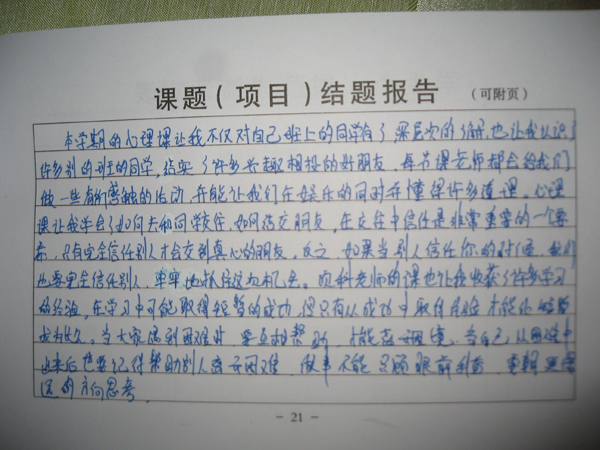 课题（项目）结题报告 （可附页）
本学期的心理课让我不仅对自己班上的同学有了深层次的了解，也让我认识了
许多别的班的同学，结实了许多兴趣相投的好朋友，每节课老师都会给我们
做一些有所感触的活动，并能让我们在娱乐的同时并懂得许多道理。心理
课让我学会了如何去和同学交往，如何结交朋友，在交往中信任是非常重要的一个要
素，只有完全信任别人才会交到真心的朋友。反之，如果当别人信任你的时候，我们
也要完全信任别人，牢牢地抓住这次机会。 老师的课也让我收获了许多学习
的经验，在学习中可能取得短暂的成功，但只有从成功中取得经验才能让
成长久。当大家遇到困难时，要互相帮助，才能走出困境。当自己从困境中
出来后也要记得帮助别人离开困难，做事不能只顾眼前利益，要朝更深
远的方向思考。
- 21 -